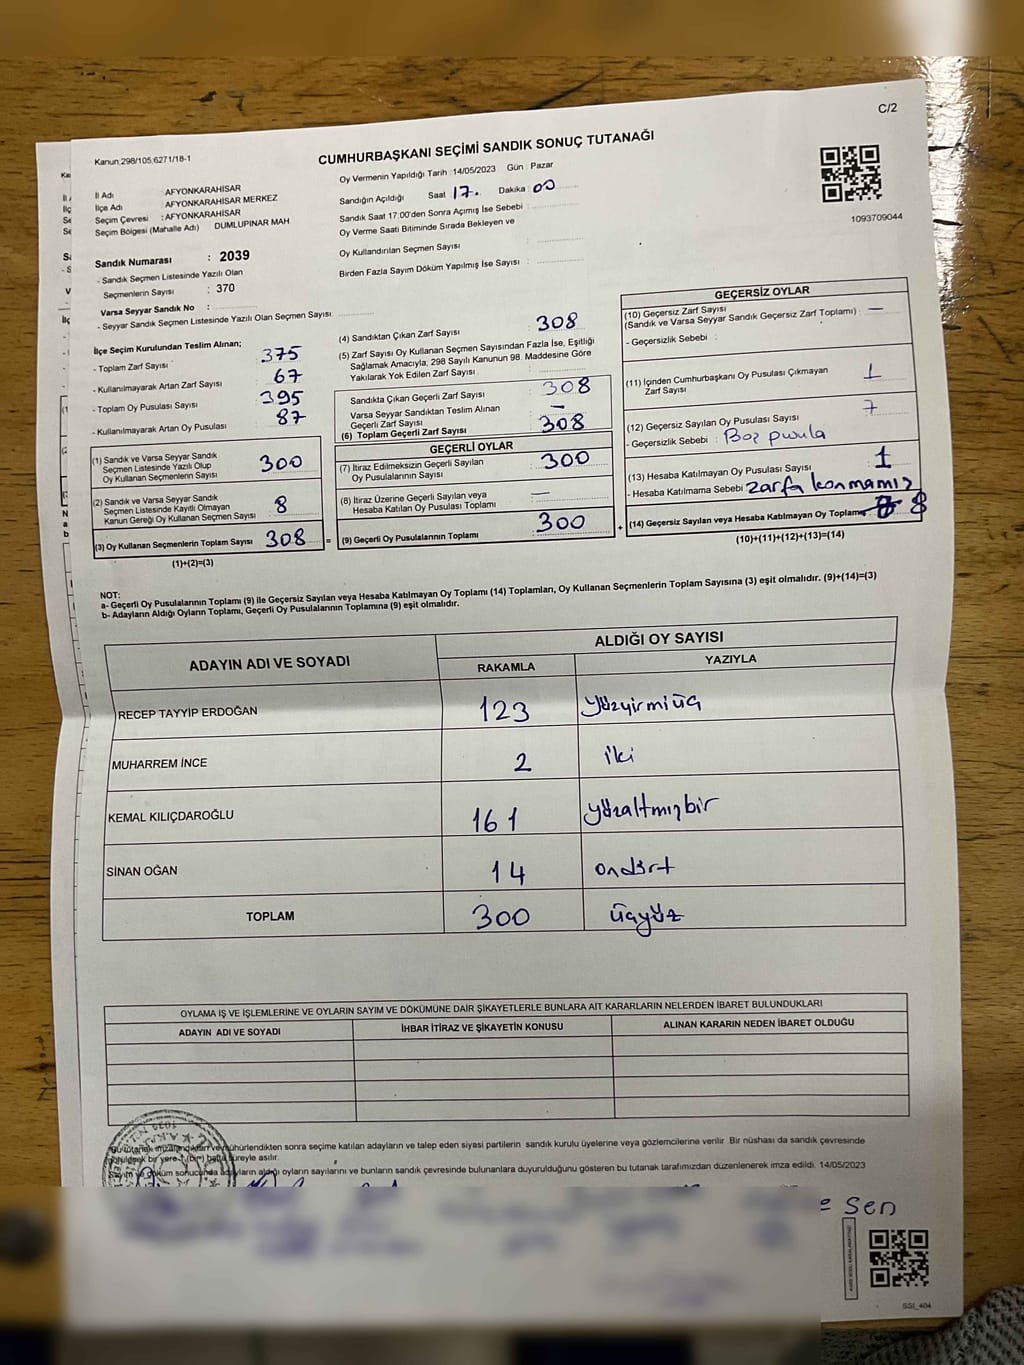 C/2
Kanun:298/105;6271/18-1
CUMHURBAŞKANI SEÇİMİ SANDIK SONUÇ TUTANAĞI
1093709044
İl Adı : AFYONKARAHİSAR
İlçe Adı : AFYONKARAHİSAR MERKEZ
Seçim Çevresi : AFYONKARAHİSAR
Seçim Bölgesi (Mahalle Adı) DUMLUPINAR MAH.
Sandık Numarası : 2039
- Sandık Seçmen Listesinde Yazılı Olan
Seçmenlerin Sayısı : 370
Varsa Seyyar Sandık No :
- Seyyar Sandık Seçmen Listesinde Yazılı Olan Seçmen Sayısı:
Oy Vermenin Yapıldığı Tarih : 14/05/2023 Gün : Pazar
Sandığın Açıldığı Saat 17. Dakika : 00
Sandık Saat 17:00'den Sonra Açımış İse Sebebi :
Oy Verme Saati Bitiminde Sırada Bekleyen ve
Oy Kullandırılan Seçmen Sayısı :
Birden Fazla Sayım Döküm Yapılmış İse Sayısı :
İlçe Seçim Kurulundan Teslim Alınan;
- Toplam Zarf Sayısı 375
- Kullanılmayarak Artan Zarf Sayısı 67
- Toplam Oy Pusulası Sayısı 395
- Kullanılmayarak Artan Oy Pusulası 87
(1) Sandık ve Varsa Seyyar Sandık
Seçmen Listesinde Yazılı Olup
Oy Kullanan Seçmenlerin Sayısı 300
(2) Sandık ve Varsa Seyyar Sandık
Seçmen Listesinde Kayıtlı Olmayan
Kanun Gereği Oy Kullanan Seçmen Sayısı 8
(3) Oy Kullanan Seçmenlerin Toplam Sayısı 308 =
(1)+(2)=(3)
(4) Sandıktan Çıkan Zarf Sayısı 308
(5) Zarf Sayısı Oy Kullanan Seçmen Sayısından Fazla İse, Eşitliği
Sağlamak Amacıyla, 298 Sayılı Kanunun 98. Maddesine Göre
Yakılarak Yok Edilen Zarf Sayısı :
Sandıkta Çıkan Geçerli Zarf Sayısı 308
Varsa Seyyar Sandıktan Teslim Alınan
Geçerli Zarf Sayısı —
(6) Toplam Geçerli Zarf Sayısı 308
GEÇERLİ OYLAR
(7) İtiraz Edilmeksizin Geçerli Sayılan
Oy Pusulasının Sayısı 300
(8) İtiraz Üzerine Geçerli Sayılan veya
Hesaba Katılan Oy Pusulası Toplamı —
(9) Geçerli Oy Pusulalarının Toplamı 300 +
GEÇERSİZ OYLAR
(10) Geçersiz Zarf Sayısı
(Sandık ve Varsa Seyyar Sandık Geçersiz Zarf Toplamı) : —
- Geçersizlik Sebebi :
(11) İçinden Cumhurbaşkanı Oy Pusulası Çıkmayan
Zarf Sayısı 1
(12) Geçersiz Sayılan Oy Pusulası Sayısı 7
- Geçersizlik Sebebi : Boş pusula
(13) Hesaba Katılmayan Oy Pusulası Sayısı 1
- Hesaba Katılmama Sebebi zarfa konmamış
(14) Geçersiz Sayılan veya Hesaba Katılmayan Oy Toplamı 8
(10)+(11)+(12)+(13)=(14)
NOT:
a- Geçerli Oy Pusulalarının Toplamı (9) ile Geçersiz Sayılan veya Hesaba Katılmayan Oy Toplamı (14) Toplamları, Oy Kullanan Seçmenlerin Toplam Sayısına (3) eşit olmalıdır. (9)+(14)=(3)
b- Adayların Aldığı Oyların Toplamı, Geçerli Oy Pusulalarının Toplamına (9) eşit olmalıdır.
ADAYIN ADI VE SOYADI ALDIĞI OY SAYISI
RAKAMLA YAZIYLA
RECEP TAYYİP ERDOĞAN 123 yüzyirmiüç
MUHARREM İNCE 2 iki
KEMAL KILIÇDAROĞLU 161 yüzaltmışbir
SİNAN OĞAN 14 ondört
TOPLAM 300 üçyüz
OYLAMA İŞ VE İŞLEMLERİNE VE OYLARIN SAYIM VE DÖKÜMÜNE DAİR ŞİKAYETLERLE BUNLARA AİT KARARLARIN NELERDEN İBARET BULUNDUKLARI
ADAYIN ADI VE SOYADI İHBAR İTİRAZ VE ŞİKAYETİN KONUSU ALINAN KARARIN NEDEN İBARET OLDUĞU
mühürlendikten sonra seçime katılan adayların ve talep eden siyasi partilerin sandık kurulu üyelerine veya gözlemcilerine verilir. Bir nüshası da sandık çevresinde
süreyle asılır.
oyların sayılarını ve bunların sandık çevresinde bulunanlara duyurulduğunu gösteren bu tutanak tarafımızdan düzenlenerek imza edildi. 14/05/2023
Sen
SSİ_404